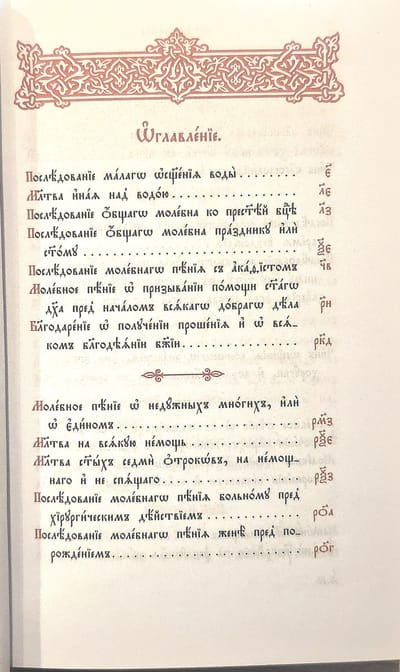 Ѡ҆главле́нїе.
Послѣ́дованїе ма́лагѡ ѡ҆сщ҃е́нїѧ воды̀ . . . . . . . . . є҃
Мл҃тва и҆на́ѧ над̾ водо́ю . . . . . . . . . . . . . . . . л҃є
Послѣ́дованїе ѻ҆́бщагѡ моле́бна ко прест҃ѣ́й бц҃ѣ л҃з
Послѣ́дованїе ѻ҆́бщагѡ моле́бна пра́здникꙋ и҆лѝ
ст҃о́мꙋ . . . . . . . . . . . . . . . . . . . . . . . . ѯ҃є
Послѣ́дованїе моле́бнагѡ пѣ́нїѧ съ а҆ка́ѳїстомъ ч҃в
Моле́бное пѣ́нїе ѡ҆ призыва́нїи по́мощи ст҃а́гѡ
дх҃а пред̾ нача́ломъ всѧ́кагѡ до́брагѡ дѣ́ла р҃и
Благодаре́нїе ѡ҆ полꙋче́нїи проше́нїѧ и҆ ѡ҆ всѧ́-
комъ бл҃годѣѧ́нїи бж҃їи . . . . . . . . . . . . . рк҃д
Моле́бное пѣ́нїе ѡ҆ недꙋ́жныхъ мно́гихъ, и҆лѝ
ѡ҆ є҆ди́номъ . . . . . . . . . . . . . . . . . . . . . рм҃з
Мл҃тва на всѧ́кꙋю не́мощь . . . . . . . . . . . . . рѯ҃є
Мл҃тва ст҃ы́хъ седмѝ ѻ҆трокѡ́въ, на не́мощ-
наго и҆ не спѧ́щаго . . . . . . . . . . . . . . . . . рѯ҃з
Послѣ́дованїе моле́бнагѡ пѣ́нїѧ больно́мꙋ пред̾
хїрꙋрги́ческимъ дѣ́йствїемъ . . . . . . . . . . ро҃а
Послѣ́дованїе моле́бнагѡ пѣ́нїѧ женѣ̀ пред̾ по-
рожде́нїемъ . . . . . . . . . . . . . . . . . . . . . ро҃г